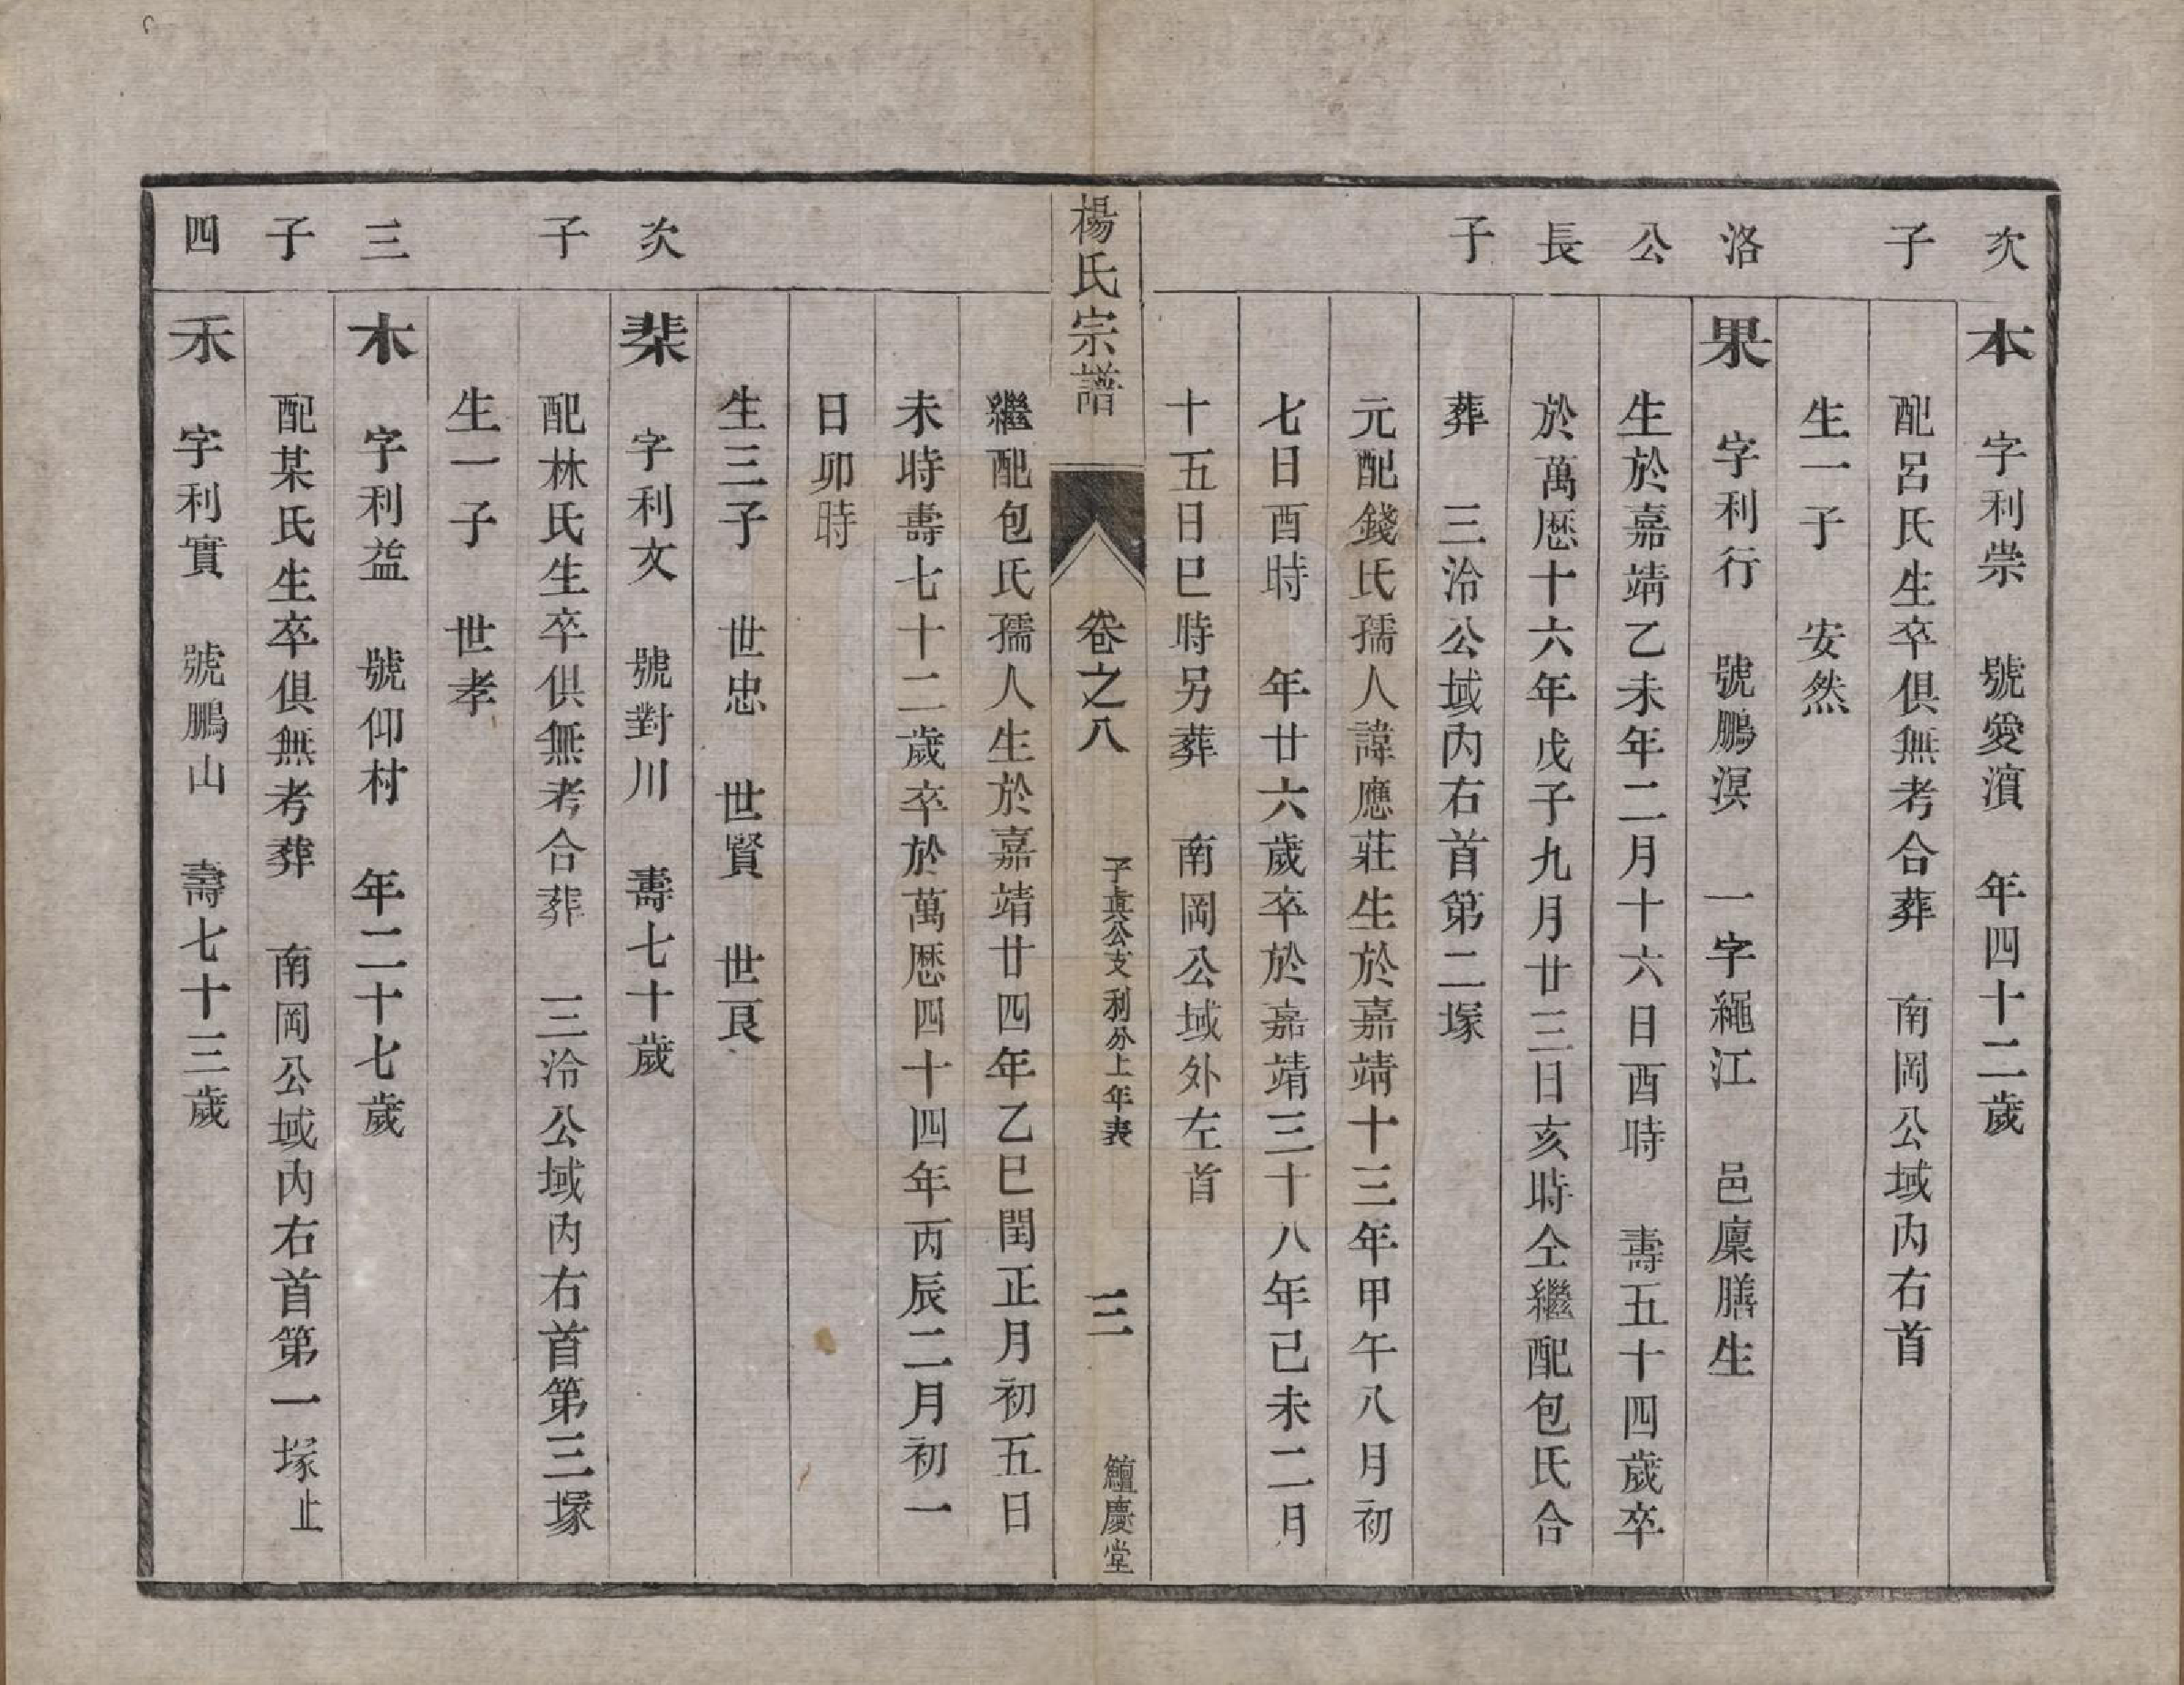 次 本 字利崇 號愛濵 年四十二歲
子 配呂氏生卒俱無考合葬 南岡公域內右首
生一子 安然
洛 果 字利行 號鵬溟 一字繩江 邑廩膳生
公 生於嘉靖乙未年二月十六日酉時 壽五十四歲卒
長 於萬厯十六年戊子九月廿三日亥時仝繼配包氏合
子 葬 三泠公域內右首第二塚
元配錢氏孺人諱應莊生於嘉靖十三年甲午八月初
七日酉時 年廿六歲卒於嘉靖三十八年己未二月
十五日巳時另葬 南岡公域外左首
楊氏宗譜 卷之八 子真公支利分上年表 三 鱣慶堂
繼配包氏孺人生於嘉靖廿四年乙巳閏正月初五日
未時壽七十二歲卒於萬厯四十四年丙辰二月初一
日卯時
生三子 世忠 世賢 世艮
次 棐 字利文 號對川 壽七十歲
子 配林氏生卒俱無考合葬 三泠公域內右首第三塚
生一子 世孝
三 木 字利益 號仰村 年二十七歲
子 配某氏生卒俱無考葬 南岡公域內右首第一塚止
四 禾 字利實 號鵬山 壽七十三歲